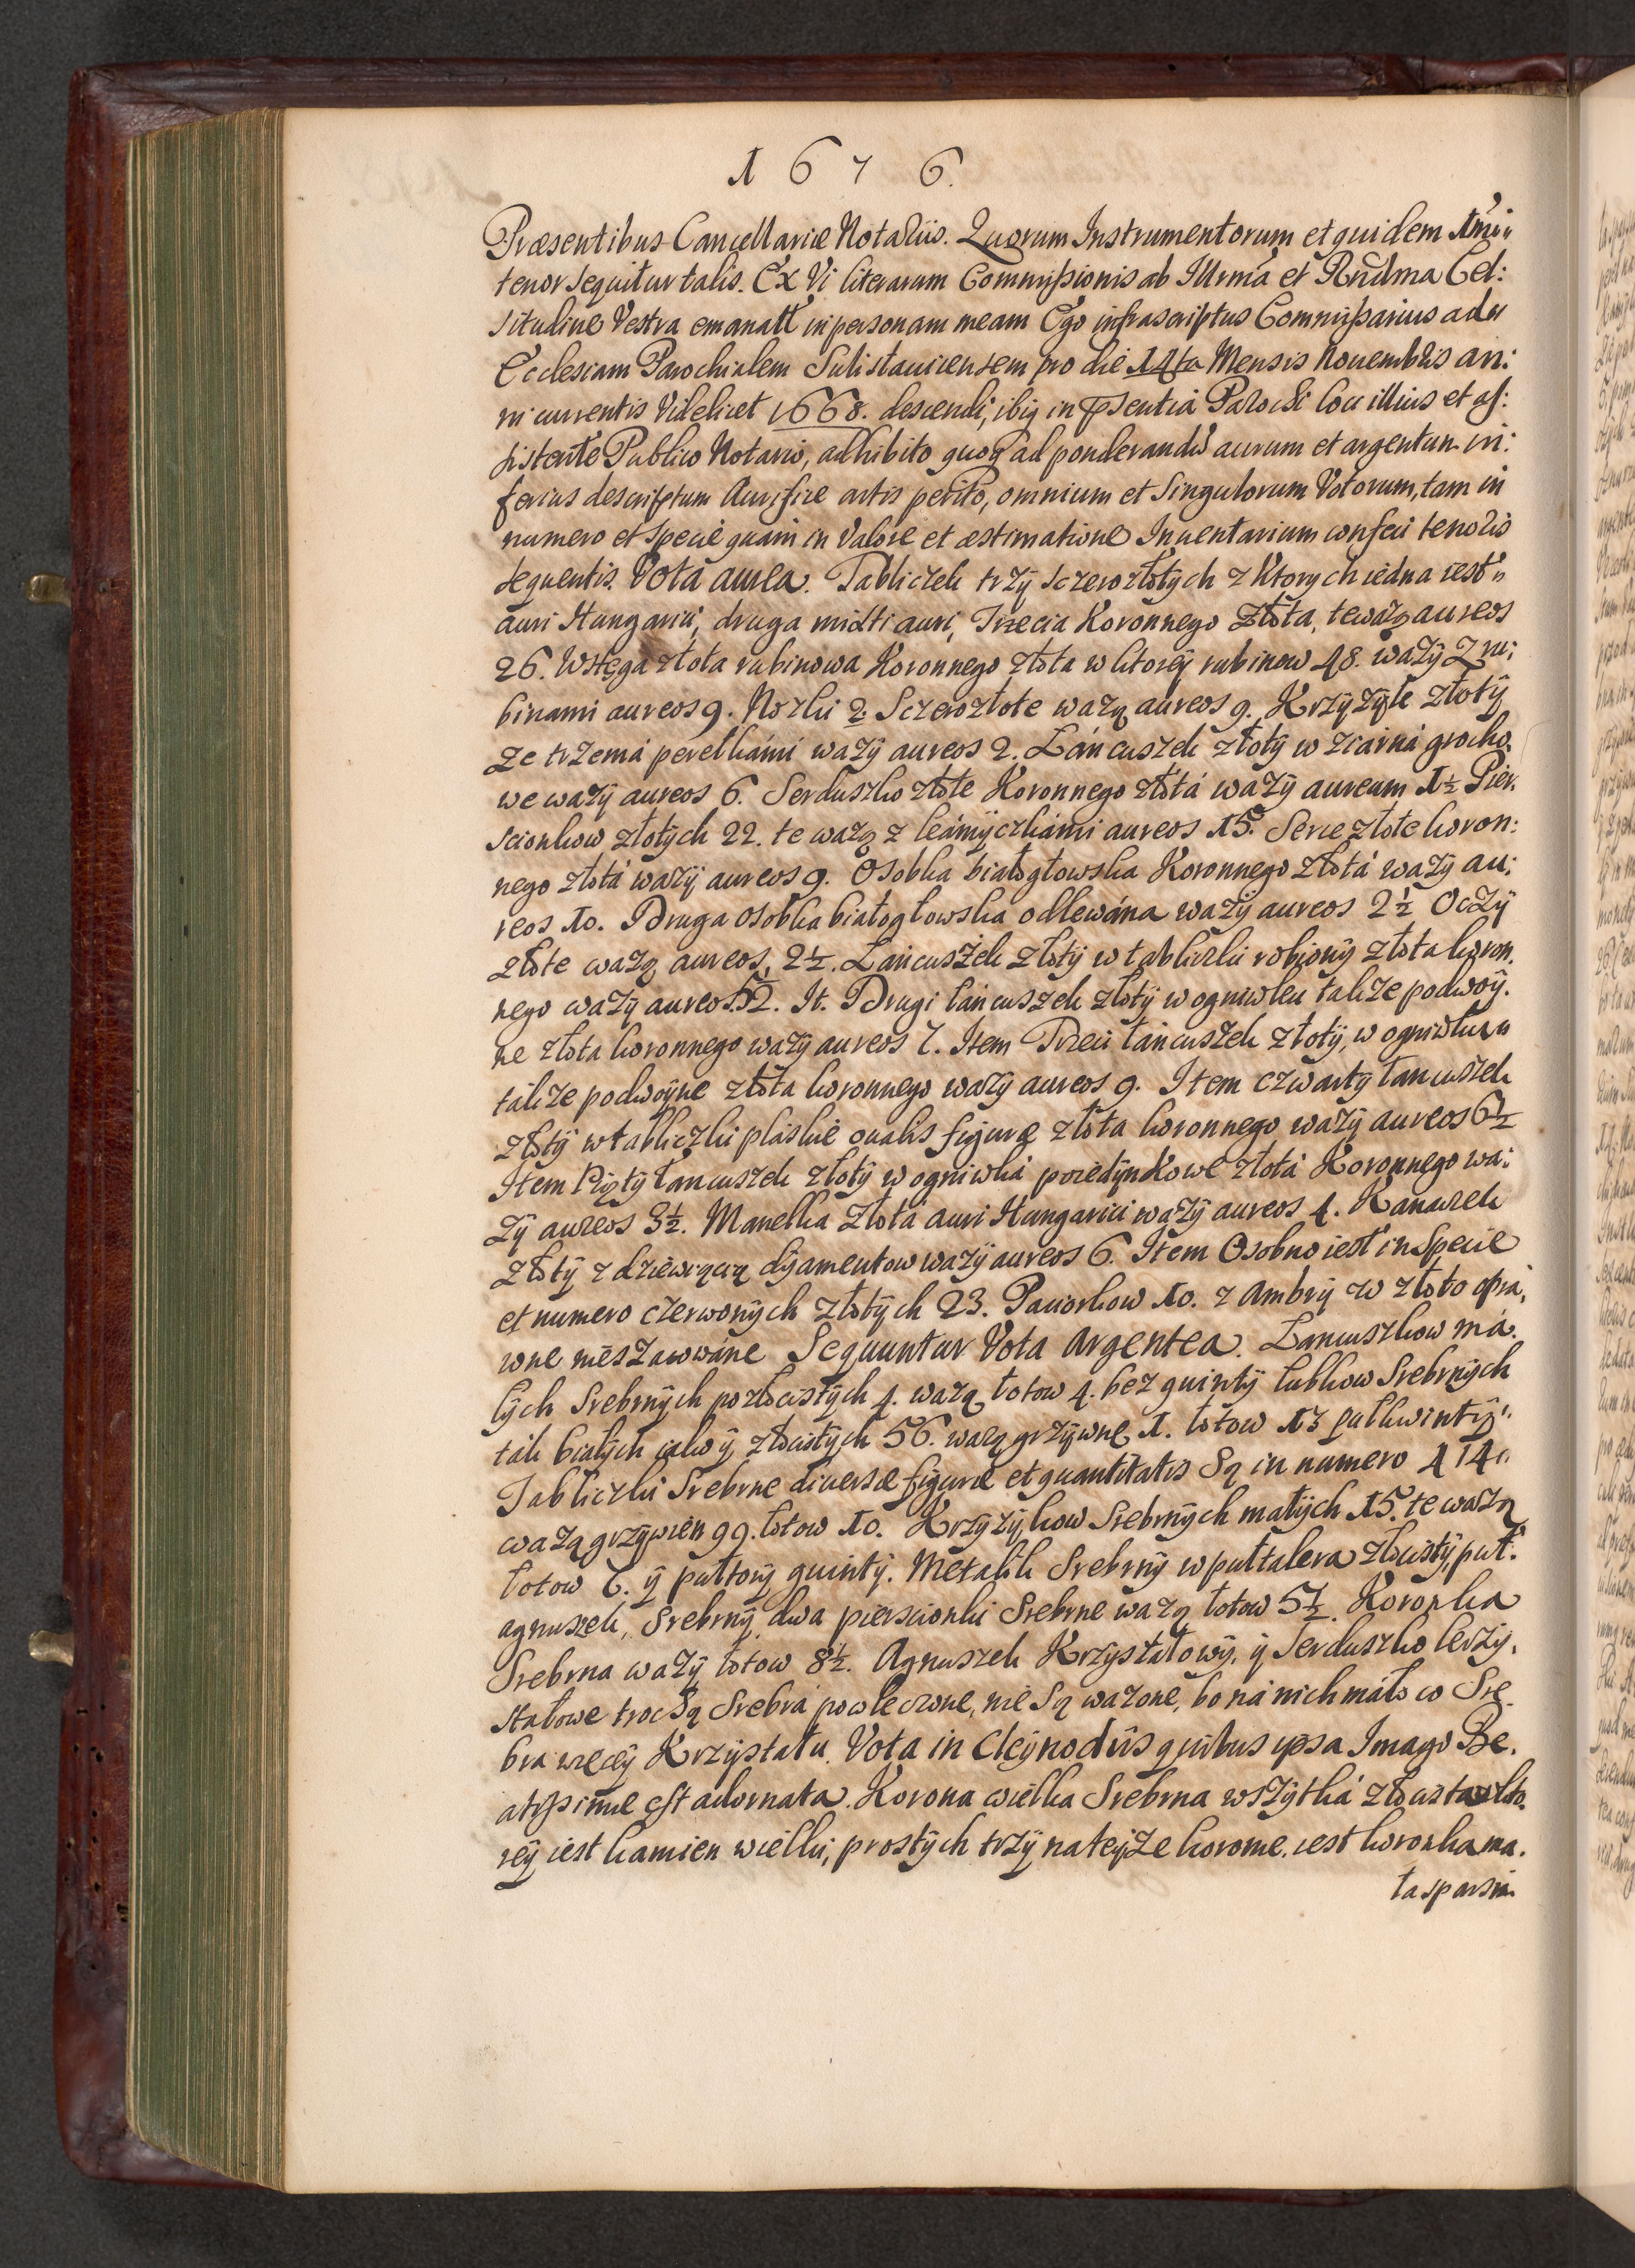 1 6 7 6.
Præsentibus Cancellariæ Notariis. Quorum Instrumentorum et quidem 1mi"
tenor sequitur talis. Ex Vi literarum Commissionis ab Illrmã et Rñdma Cel:
situdine Vestra emanatt in personam meam Ego infrascriptus Commissarius ad"
Ecclesiam Parochialem Sulislauicensem pro die 14ta Mensis Nouembris an:
ni currentis Videlicet 1668. descendi, ibiq in psentia Parochi loci illius et as:
sistente Publico Notario, adhibito quoq ad ponderandũ aurum et argentum in:
ferius descriptum Aurifice artis perito, omnium et Singulorum Votorum, tam in
numero et specie quam in Valore et æstimatione Inuentarium confeci tenoris
sequentis. Vota aurea. Tabliczek trzÿ sczerozłotÿch z Ktorych iedna iest"
auri Hungarici, druga midti auri, Trzecia Koronnego Złota, te ważą aureos
26. Wstęga złota rubinowa Koronnego złota w ktoreÿ rubinow 48. ważÿ z ru:
binami aureos 9. Nozki 2. Sczerozłote ważą aureos 9. Krzÿżÿk złotÿ
ze trzema perełkámi ważÿ aureos 2. Łáncuszek złotÿ w ziarná grocho.
we ważÿ aureos 6. Serduszko złote Koronnego złotá ważÿ aureum 1½ Pier.
scionkow złotÿch 22. te ważą z kámÿczkámi aureos 15. Serce złote koron:
nego złotá ważÿ aureos 9. Osobka białogłowska Koronnego złotá ważÿ au:
reos 10. Druga osobka białogłowska odlewána ważÿ aureos 2½ Oczÿ
złote ważą aureos, 2½. Łáncuszek złotÿ w tabliczki robionÿ złota koron.
nego ważÿ aureos 52. It. Drugi łáncuszek złotÿ w ogniwka także podwoÿ.
ne złota koronnego ważÿ aureos 7. Item Trzeci łáncuszek złotÿ, w ogniwka"
także podwoÿne złota koronnego ważÿ aureos 9. Item czwartÿ łancuszek
złotÿ w tabliczki płáskie oualis figuræ złota koronnego ważÿ aureos 6½
Item Piątÿ łancuszek złotÿ w ogniwká poiedÿnkowe złotá Koronnego wa:
żÿ aureos 3½. Manelka złotá auri Hungarici ważÿ aureos 4. Kanaczek
złotÿ z dziewiącią dÿamentow ważÿ aureos 6. Item Osobno iest in Specie
et numero czerwonÿch złotÿch 23. Paciorkow 10. z Ambrÿ w złoto oprá,
wne nieszacowáne Sequuntur Vota Argentea. Łancuszkow má.
łÿch Srebrnÿch pozłocistÿch 4. ważą łotow 4. bez quintÿ łubkow Srebrnÿch
ták białÿch iako ÿ złocistÿch 56. ważą grzÿwnę 1. łotow 13 pułkwintÿ"
Tabliczki Srebrne diuersæ figuræ et quantitatis Są in numero 414"
ważą grzÿwien 99. łotow 10. Krzÿżÿkow Srebrnÿch małÿch 15. te ważą
łotow 6. ÿ pułtorÿ quintÿ. Metalik Srebrnÿ w pułtalera złocistÿ, puł.
agnuszek, Srebrnÿ, dwa pierscionki Srebrne ważą łotow 5½. Koronka
Srebrna ważÿ łotow 8½. Agnuszek Krzÿstałowÿ, ÿ Serduszko krzÿ.
stałowe trochą Srebrá powleczone, nie Są ważone, bo ná nich máło co Sre.
bra więceÿ Krzÿstału. Vota in Cleÿnodiis quibus ipsa Imago Be.
atissimæ est adornata. Korona wielka Srebrna wszÿtká złocista w kto.
reÿ iest kamien wielki, prostÿch trzÿ na teÿże koronie. iest koronka ma.
ła sparsia.